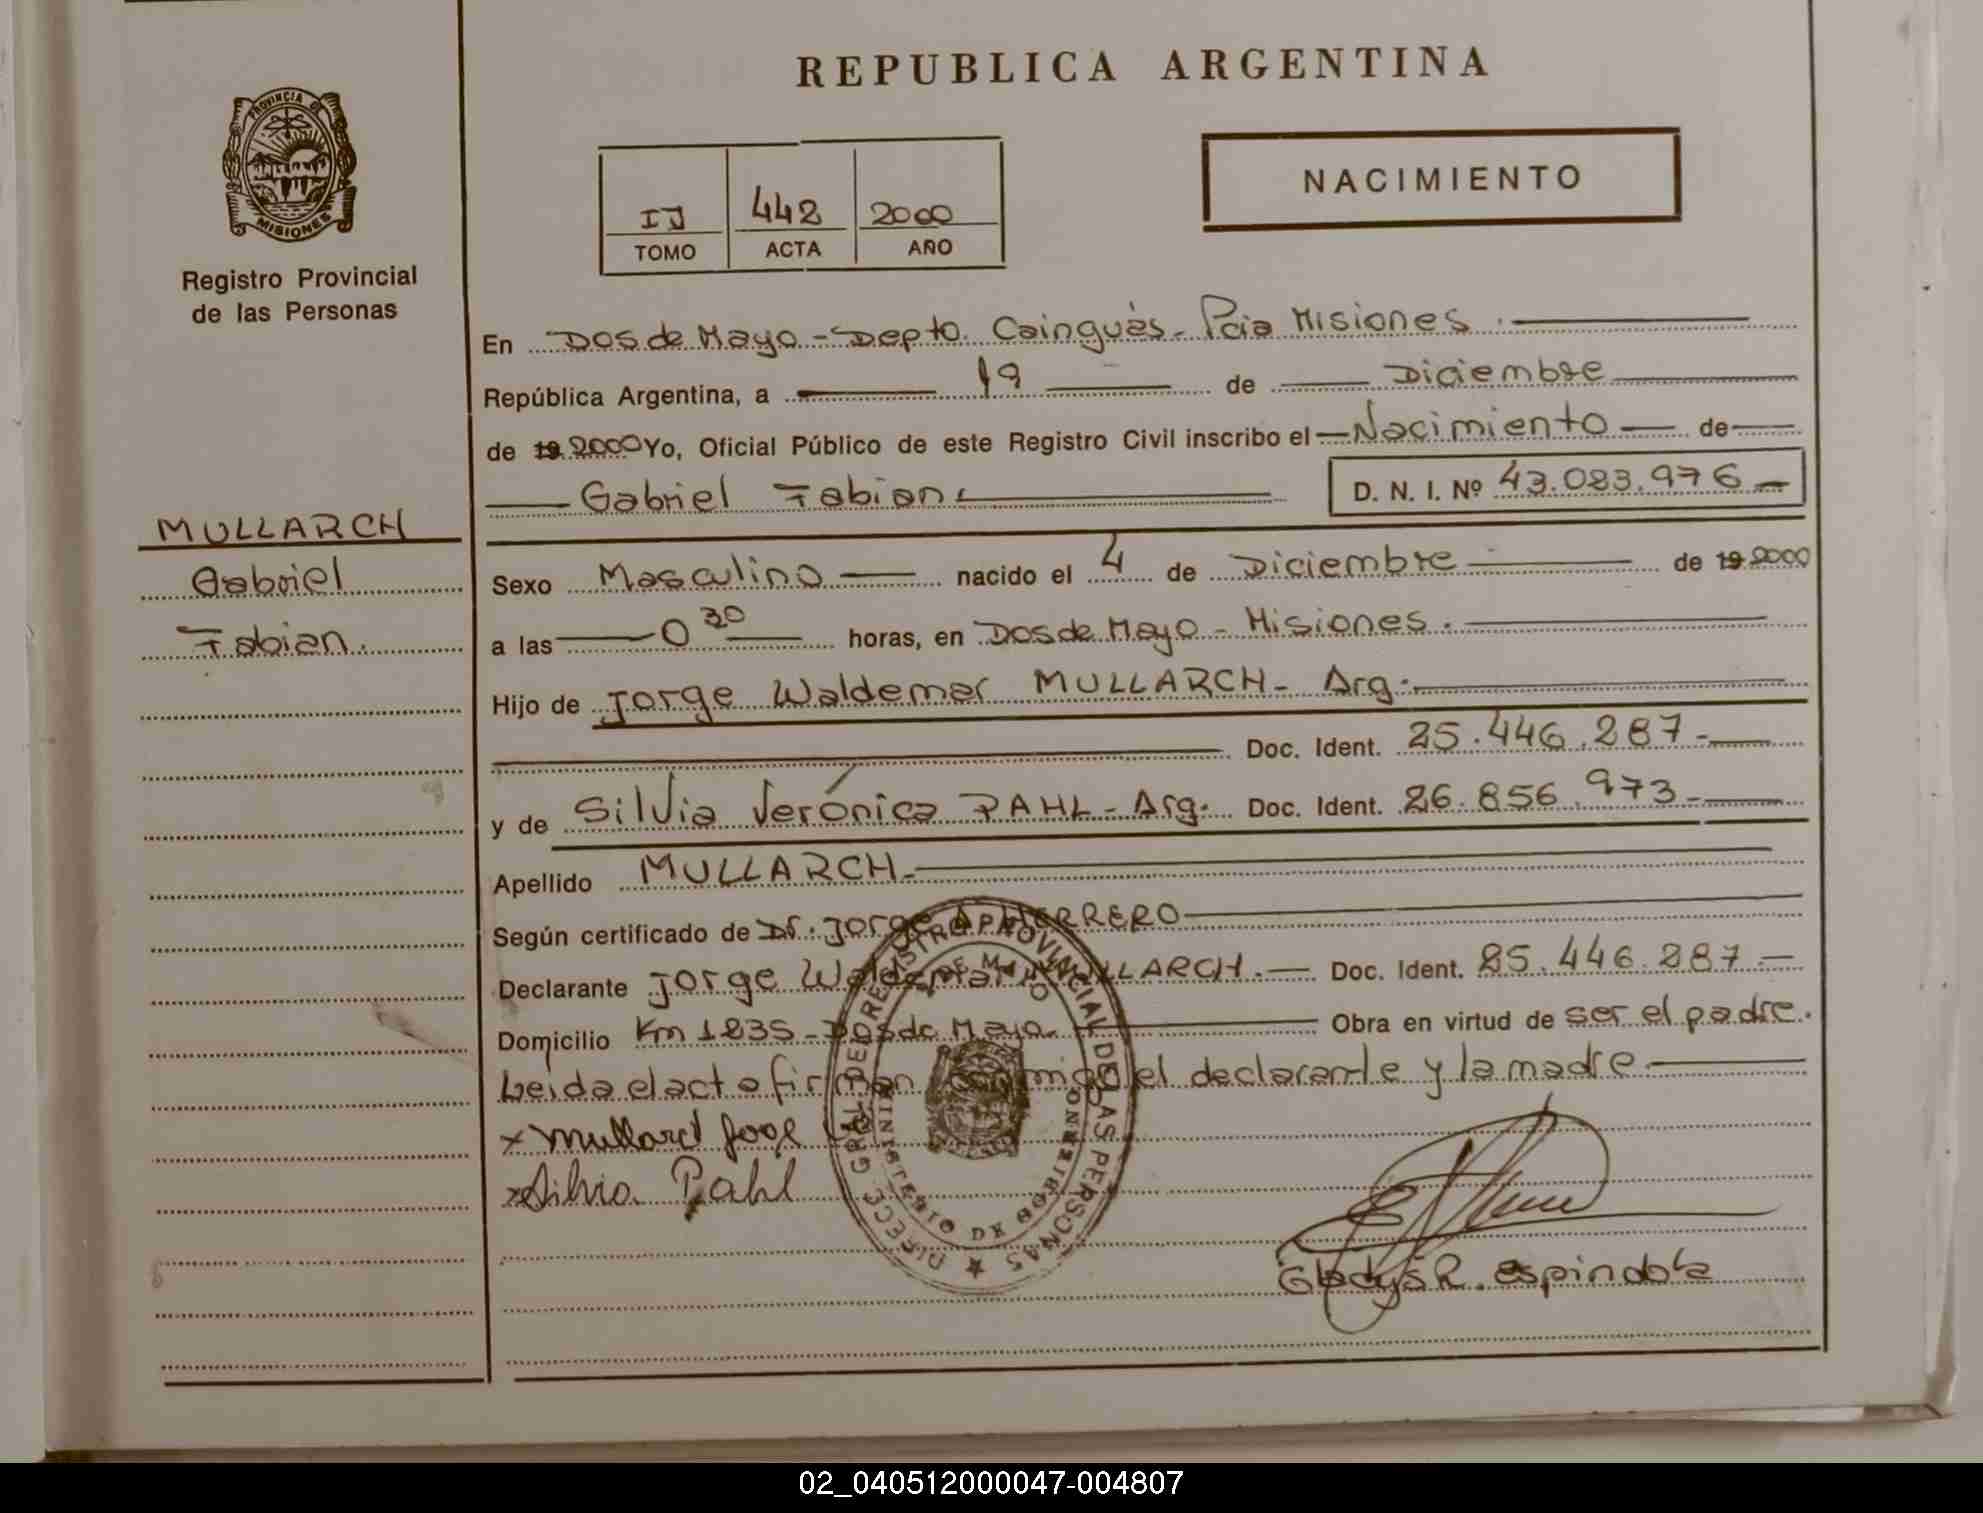 REPUBLICA ARGENTINA
PROVINCIA DE
MISIONES
Registro Provincial
de las Personas
IJ 442 2000
TOMO ACTA AÑO
NACIMIENTO
En Dos de Mayo - Depto. Cainguás - Pcia Misiones.
República Argentina, a 19 de Diciembre
de 19 2000 Yo, Oficial Público de este Registro Civil inscribo el Nacimiento de
Gabriel Fabian D. N. I. Nº 43.083.976
MULLARCH
Gabriel
Fabian.
Sexo Masculino nacido el 4 de Diciembre de 19 2000
a las 0 30 horas, en Dos de Mayo - Misiones.
Hijo de Jorge Waldemar MULLARCH - Arg.
Doc. Ident. 25.446.287.-
y de Silvia Verónica PAHL - Arg. Doc. Ident. 26.856.973.-
Apellido MULLARCH.-
Según certificado de Dr. Jorge HERRERO
Declarante Jorge Waldemar MULLARCH.- Doc. Ident. 25.446.287
Domicilio Km 1235 - Dos de Mayo. Obra en virtud de ser el padre.
Leida el acta firman conmigo el declarante y la madre
x Mullarch Jorge
x Silvia Pahl
DIRECC GRAL DE REGISTRO PROVINCIAL DE LAS PERSONAS
MINISTERIO DE GOBIERNO
2 DE MAYO
Gladys R. Espindola
02_040512000047-004807